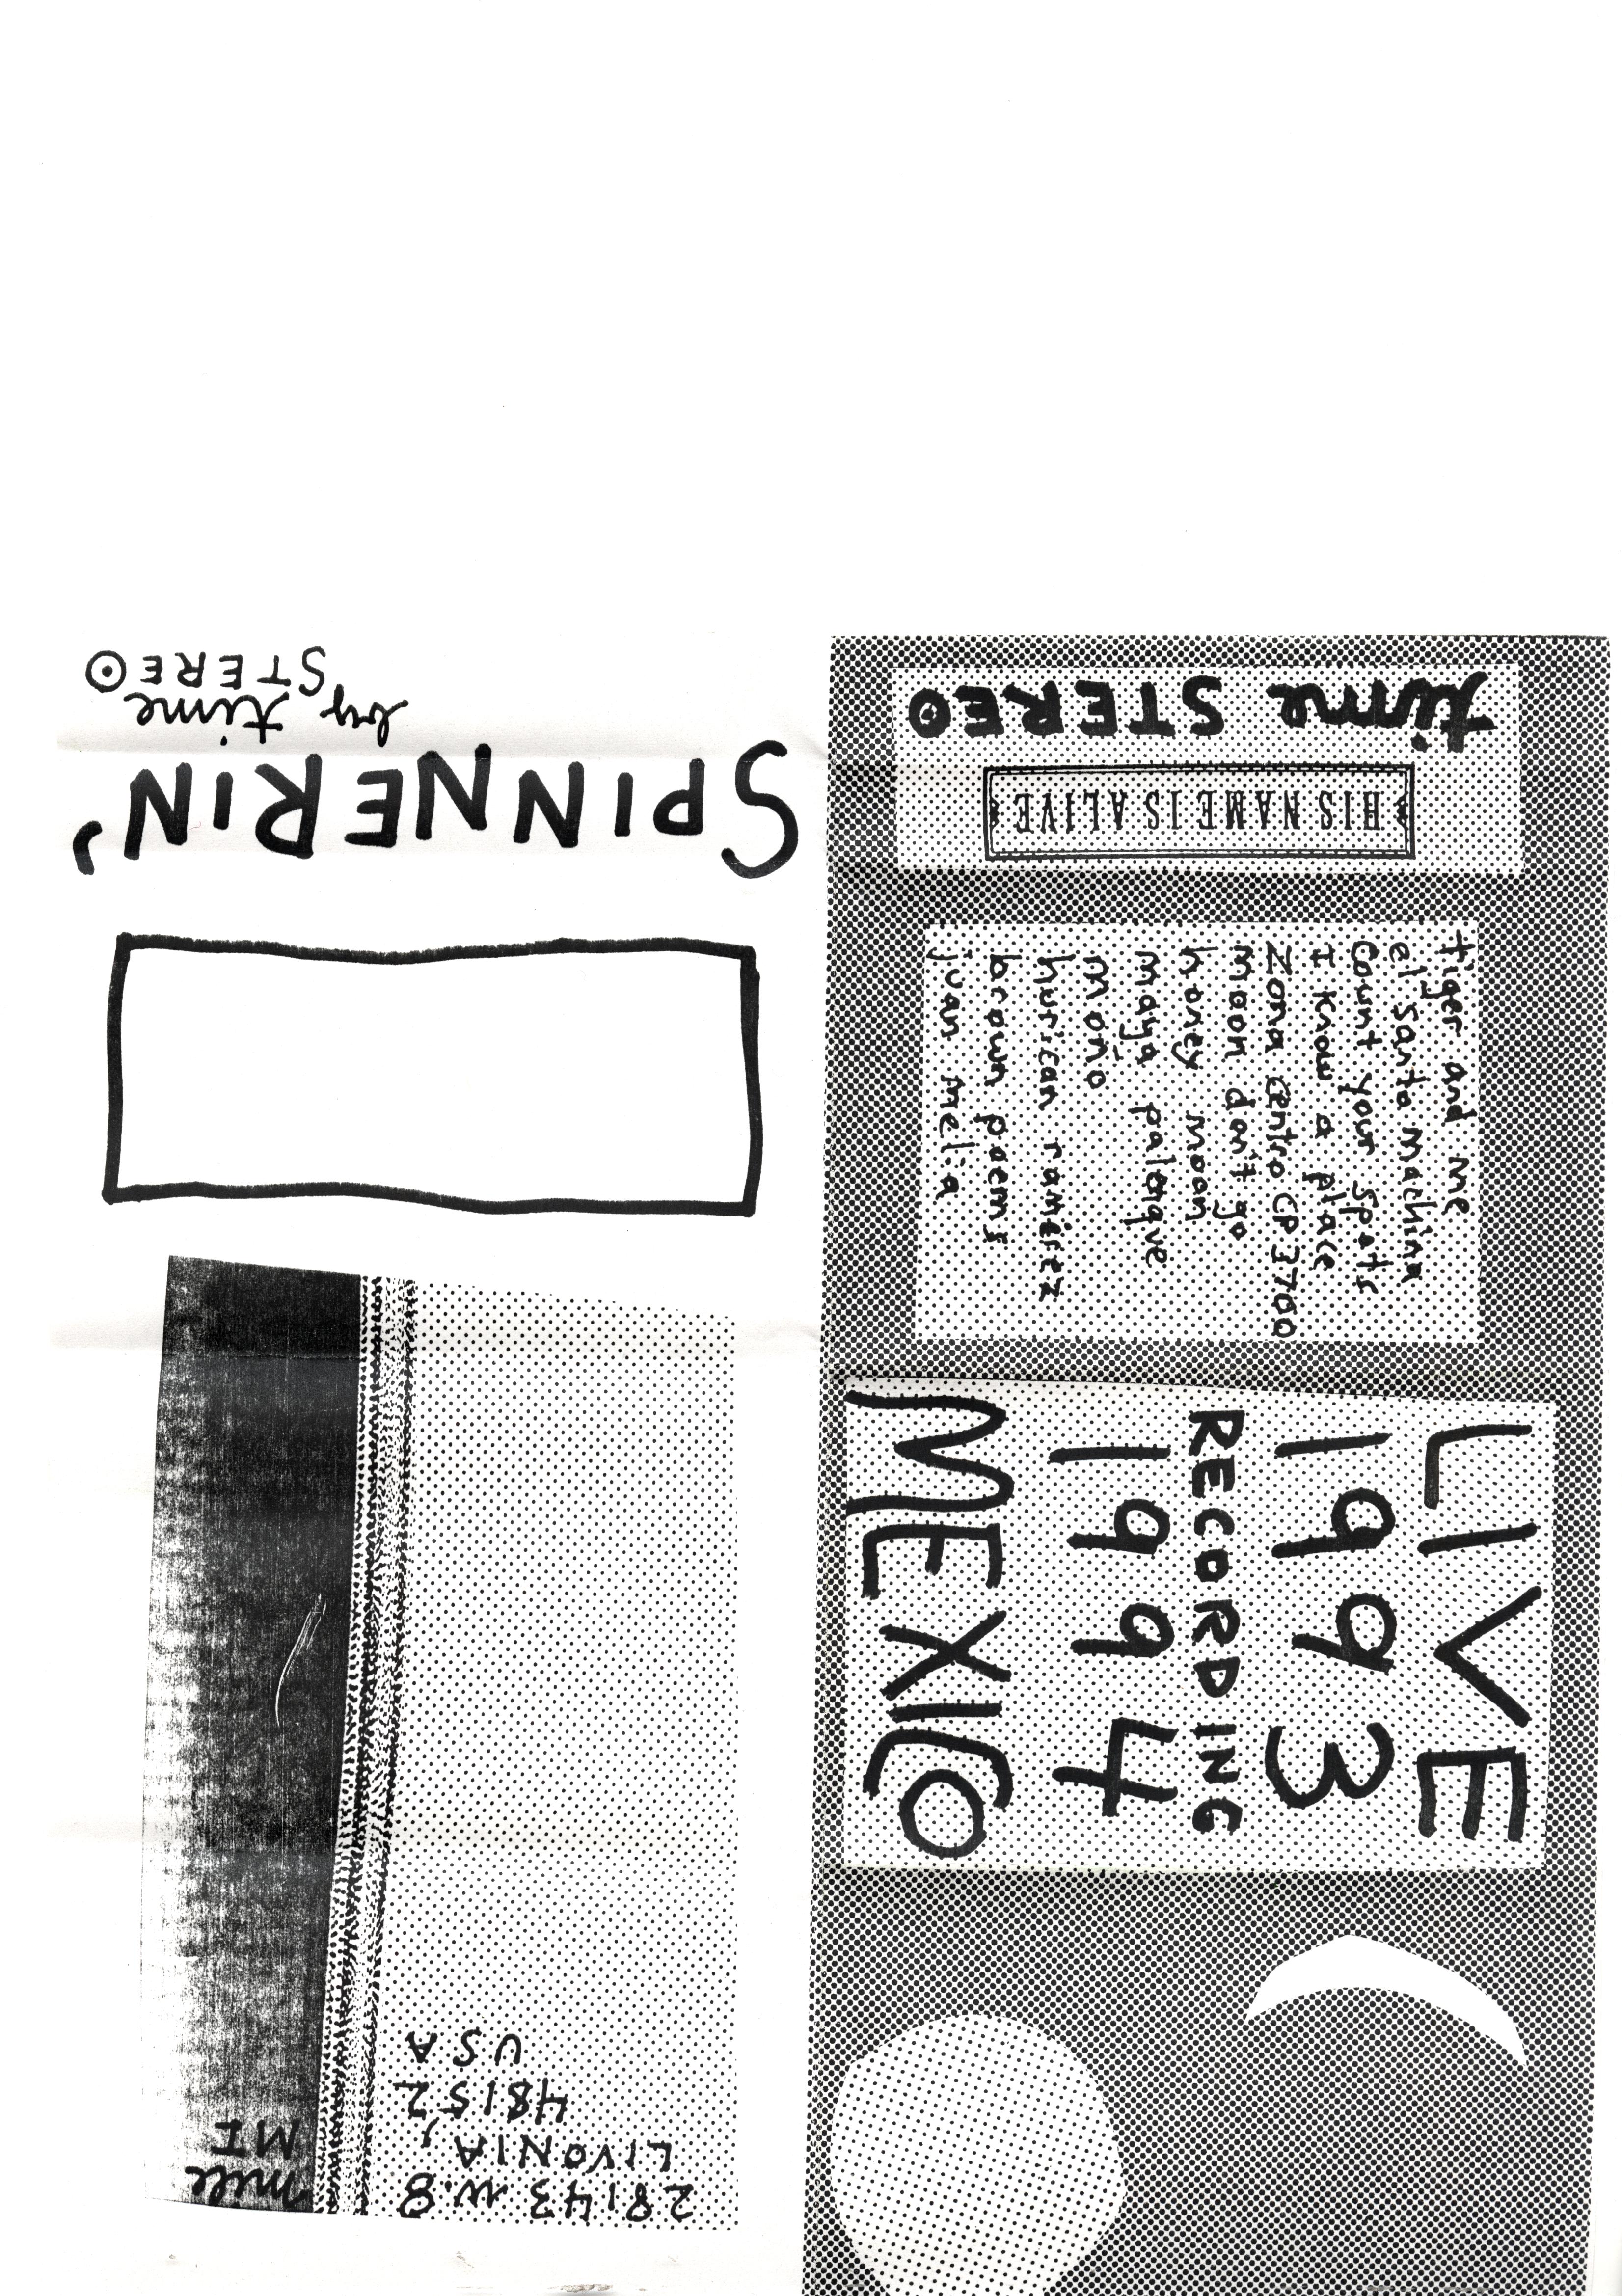 SPINNERIN'
by time
STEREO
28143 W. 8 mile
LIVONIA, MI
48152
USA
time STEREO
HIS NAME IS ALIVE
tiger and me
el santa machina
Count your spots
I know a place
Zona Centro CP 3700
moon don't go
honey moon
maya palenque
moño
hurican ramirez
brown poems
juan melia
LIVE
1993
RECORDING
1994
MEXICO